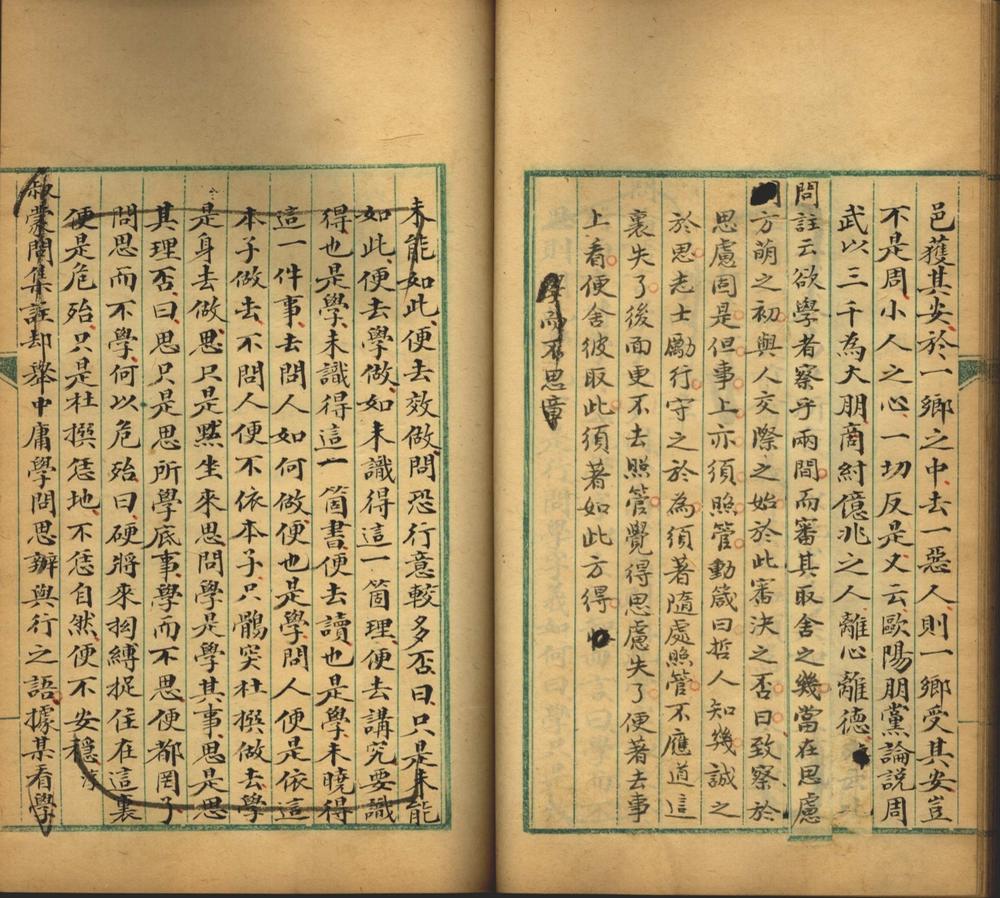 邑獲其安於一鄉之中去一惡人則一鄉受其安豈
不是周小人之心一切反是又云歐陽朋黨論説周
武以三千為大朋商紂億兆之人離心離德
問註云欲學者察乎兩間而審其取舍之幾當在思慮
方萌之初與人交際之始於此審決之否曰致察於
思慮固是但事上亦須照管動箴曰哲人知幾誠之
於思志士勵行守之於為須著隨處照管不應道這
裏失了後面更不去照管覺得思慮失了便著去事
上看便舍彼取此須著如此方得
學而不思章
未能如此便去效做問恐行意較多否曰只是未能
如此便去學做如未識得這一箇理便去講究要識
得也是學未識得這一箇書便去讀也是學未曉得
這一件事去問人如何做便也是學問人便是依這
本子做去不問人便不依本子只鶻突杜撰做去學
是身去做思只是黙坐來思問學是學其事思是思
其理否曰思只是思所學底事學而不思便都罔了
問思而不學何以危殆曰硬將來拘縛捉住在這裏
便是危殆只是杜撰恁地不恁自然便不安穩 淳
叔蒙問集註却舉中庸學問思辨與行之語據某看學